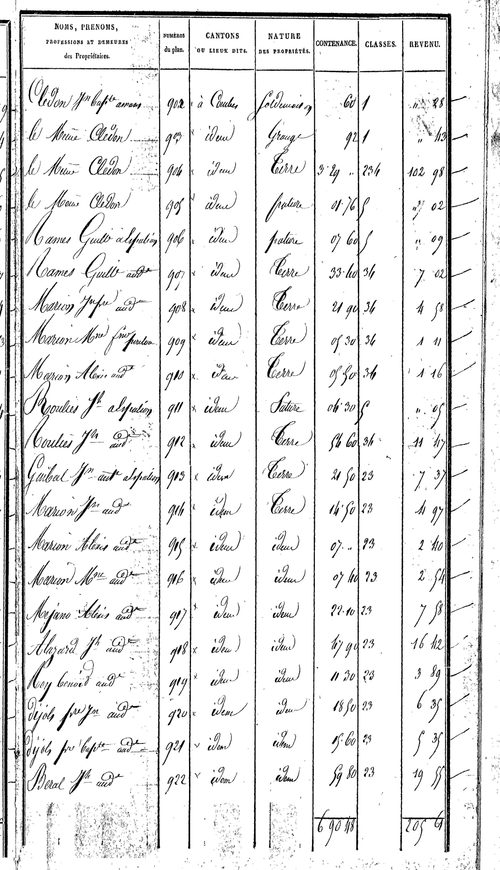 NOMS, PRENOMS, PROFESSIONS ET DEMEURES des Propriétaires. | NUMÉROS du plan. | CANTONS OU LIEUX DITS. | NATURE DES PROPRIÉTÉS. | CONTENANCE. | CLASSES. | REVENU.
Clédon 902 à Combes 60 1 " 28
le Même Clédon 903 idem Grange 92 1 " 43
le Même Clédon 904 idem Terre 3 29 " 234 102 98
le Même Clédon 905 idem pature 01 76 5 " 02
Rames 906 idem pature 07 60 5 " 09
Rames 907 idem Terre 33 40 34 7 02
Marion 908 idem Terre 21 90 34 4 58
Marion 909 idem Terre 05 30 34 1 11
Marion Alexis aud 910 idem Terre 05 50 34 1 16
Roulies 911 idem Pature 04 30 5 " 05
Roulies aud 912 idem Terre 54 60 34 11 47
Guibal 913 idem Terre 21 50 23 7 37
Marion Jn aud 914 idem Terre 14 50 23 4 97
Marion Alexis aud 915 idem idem 07 " 23 2 40
Marion aud 916 idem idem 07 40 23 2 54
Mejano Alexis aud 917 idem idem 22 10 23 7 58
Alazard Jh aud 918 idem idem 47 90 23 16 42
Rey benoid aud 919 idem idem 11 30 23 3 89
dijols aud 920 idem idem 18 50 23 6 35
dijols aud 921 idem idem 15 60 23 5 35
Boral Jh aud 922 idem idem 59 80 23 19 55
6 90 48 205 61